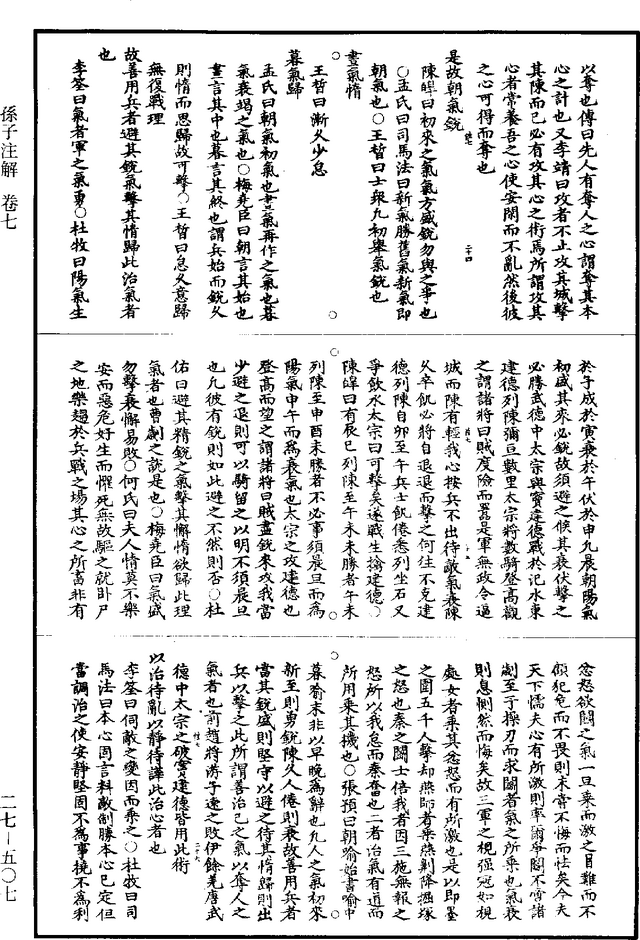 孫子注解　卷七
以奪也傳曰先人有奪人之心謂奪其本
心之計也又李靖曰攻者不止攻其城擊
其陳而已必有攻其心之術焉所謂攻其
心者常養吾之心使安閑而不亂然後彼
之心可得而奪也
是故朝氣銳
陳皥曰初來之氣氣方盛銳勿與之爭也
○孟氏曰司馬法曰新氣勝舊氣新氣即
朝氣也○王晳曰士衆凡初舉氣銳也
晝氣惰
王晳曰漸久少怠
暮氣歸
孟氏曰朝氣初氣也晝氣再作之氣也暮
氣衰竭之氣也○梅堯臣曰朝言其始也
晝言其中也暮言其終也謂兵始而銳久
則惰而思歸故可擊○王晳曰怠久意歸
無復戰理
故善用兵者避其銳氣擊其惰歸此治氣者
也
李筌曰氣者軍之氣勇○杜牧曰陽氣生
於子成於寅衰於午伏於申凡晨朝陽氣
初盛其來必銳故須避之候其衰伏擊之
必勝武德中太宗與竇建德戰於汜水東
建德列陳彌亘數里太宗將數騎登高觀
之謂諸將曰賊度險而囂是軍無政令逼
城而陳有輕我心按兵不出待敵氣衰陳
久卒飢必將自退退而擊之何往不克建
德列陳自卯至午兵士飢倦悉列坐右又
爭飲水太宗曰可擊矣遂戰生擒建德○
陳皥曰有辰巳列陳至午未未勝者午未
列陳至申酉未勝者不必事須晨旦而為
陽氣申午而為衰氣也太宗之攻建德也
登高而望之謂諸將曰賊盡銳來攻我當
少避之退則可以騎留之以明不須晨旦
也凡彼有銳則如此避之不然則否○杜
佑曰避其精銳之氣擊其懈惰欲歸此理
氣者也曹劌之說是也○梅堯臣曰氣盛
勿擊衰懈易敗○何氏曰夫人情莫不樂
安而惡危好生而懼死無故驅之就卧尸
之地樂趨於兵戰之場其心之所畜非有
忿怒欲鬭之氣一旦乘而激之冒難而不
顧犯危而不畏則未嘗不悔而怯矣今夫
天下懦夫心有所激則率爾爭鬭不啻諸
劌至于操刃而求鬭者氣之所乘也氣衰
則息惻然而悔矣故三軍之視强寇如視
處女者乘其忿怒而有所激也是以即墨
之圍五千人擊却燕師者乘燕劓降掘塚
之怒也秦之鬭士倍我者因三施無報之
怒所以我怠而秦奮也二者治氣有道而
所用乘其機也○張預曰朝喻始晝喻中
暮喻末非以早晚為辭也凡人之氣初來
新至則勇銳陳久人倦則衰故善用兵者
當其銳盛則堅守以避之待其惰歸則出
兵以擊之此所謂善治己之氣以奪人之
氣者也前趙將游子遠之敗伊餘羌唐武
德中太宗之破竇建德皆用此術
以治待亂以靜待譁此治心者也
李筌曰伺敵之變因而乘之○杜牧曰司
馬法曰本心固言料敵制勝本心已定但
當調治之使安靜堅固不為事撓不為利
二七-五〇七